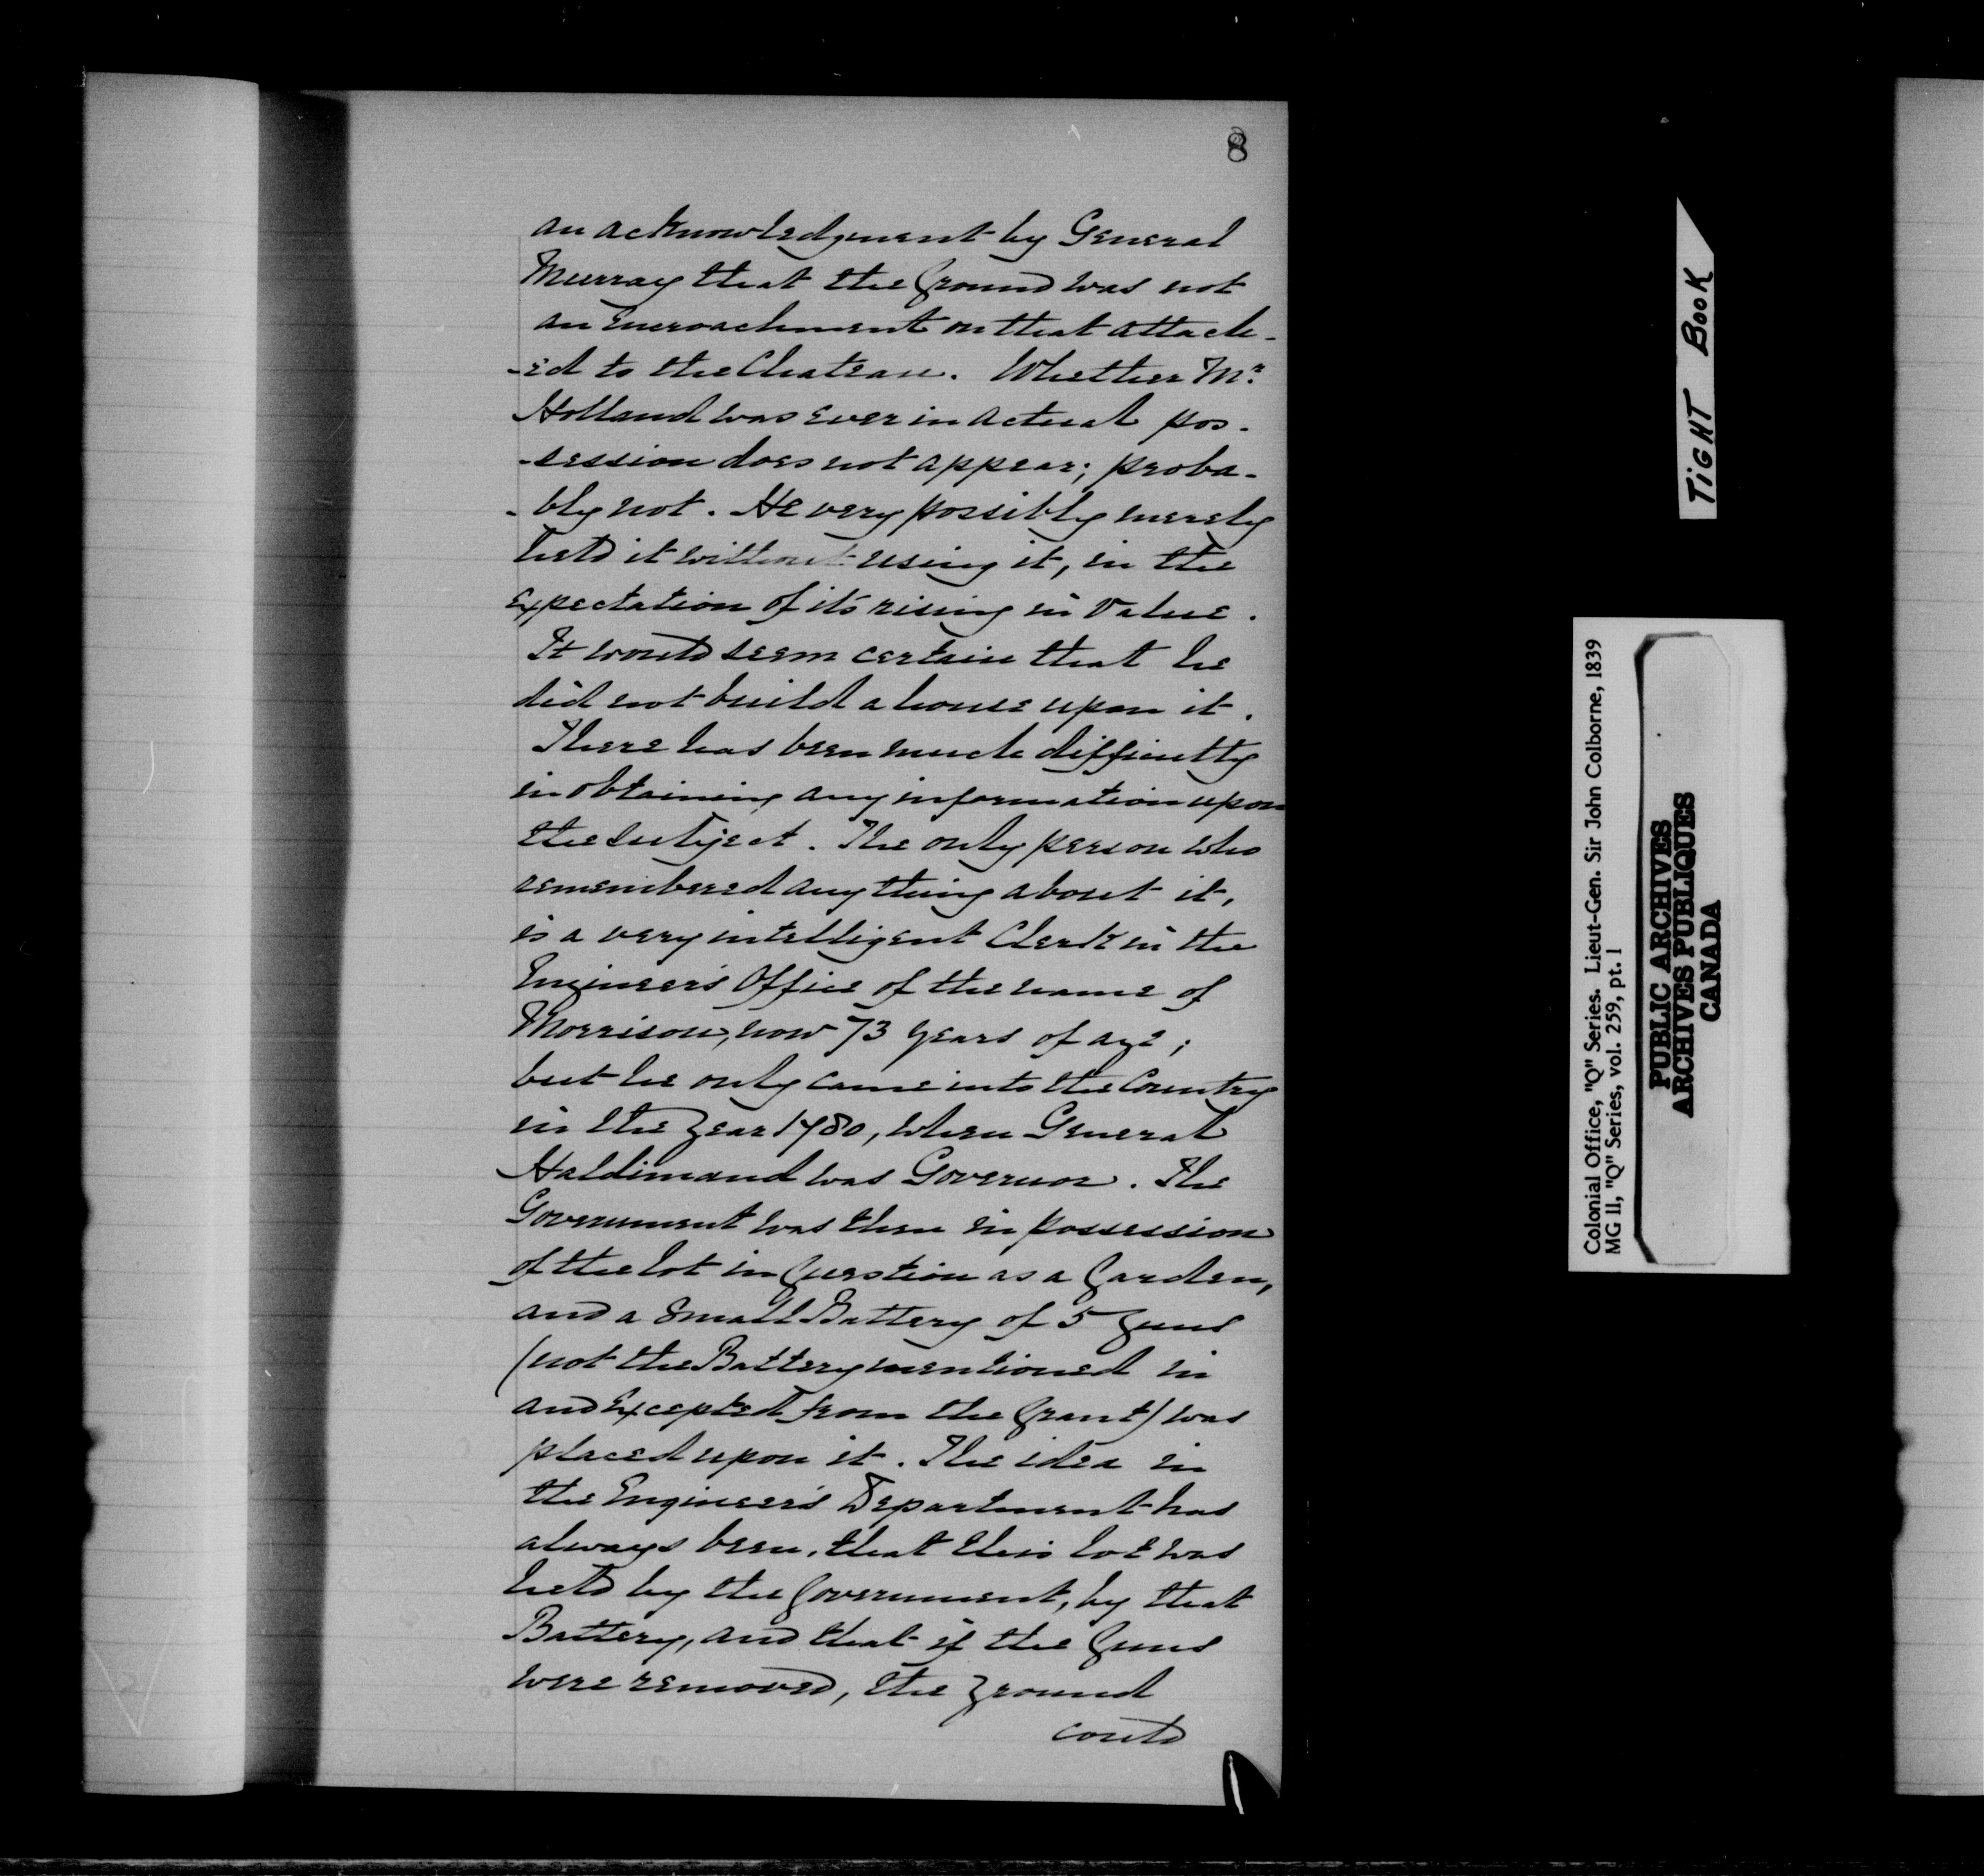 8
an acknowledgment by General
Murray that the Ground was not
an Encroachment on that attach-
-ed to the Chateau. Whether Mr.
Holland was ever in actual pos-
-session does not appear; proba-
-bly not. He very possibly merely
held it without using it, in the
Expectation of it's rising in Value.
It would seem certain that he
did not build a house upon it.
There has been much difficulty
in obtaining any information upon
the subject. The only person who
remembered any thing about it,
is a very intelligent Clerk in the
Engineer's Office of the name of
Morrison, now 73 years of age;
but he only came into the Country
in the Year 1780, when General
Haldimand was Governor. The
Government was then in possession
of the lot in Question as a Garden,
and a Small Battery of 5 Guns
(not the Battery mentioned in
and Excepted from the Grant) was
placed upon it. The idea in
the Engineer's Department has
always been, that this lot was
held by the Government, by that
Battery, and that if the Guns
were removed, the ground
could
TIGHT BOOK
Colonial Office, "Q" Series. Lieut-Gen. Sir John Colborne, 1839
MG 11, "Q" Series, vol. 259, pt. 1
PUBLIC ARCHIVES
ARCHIVES PUBLIQUES
CANADA